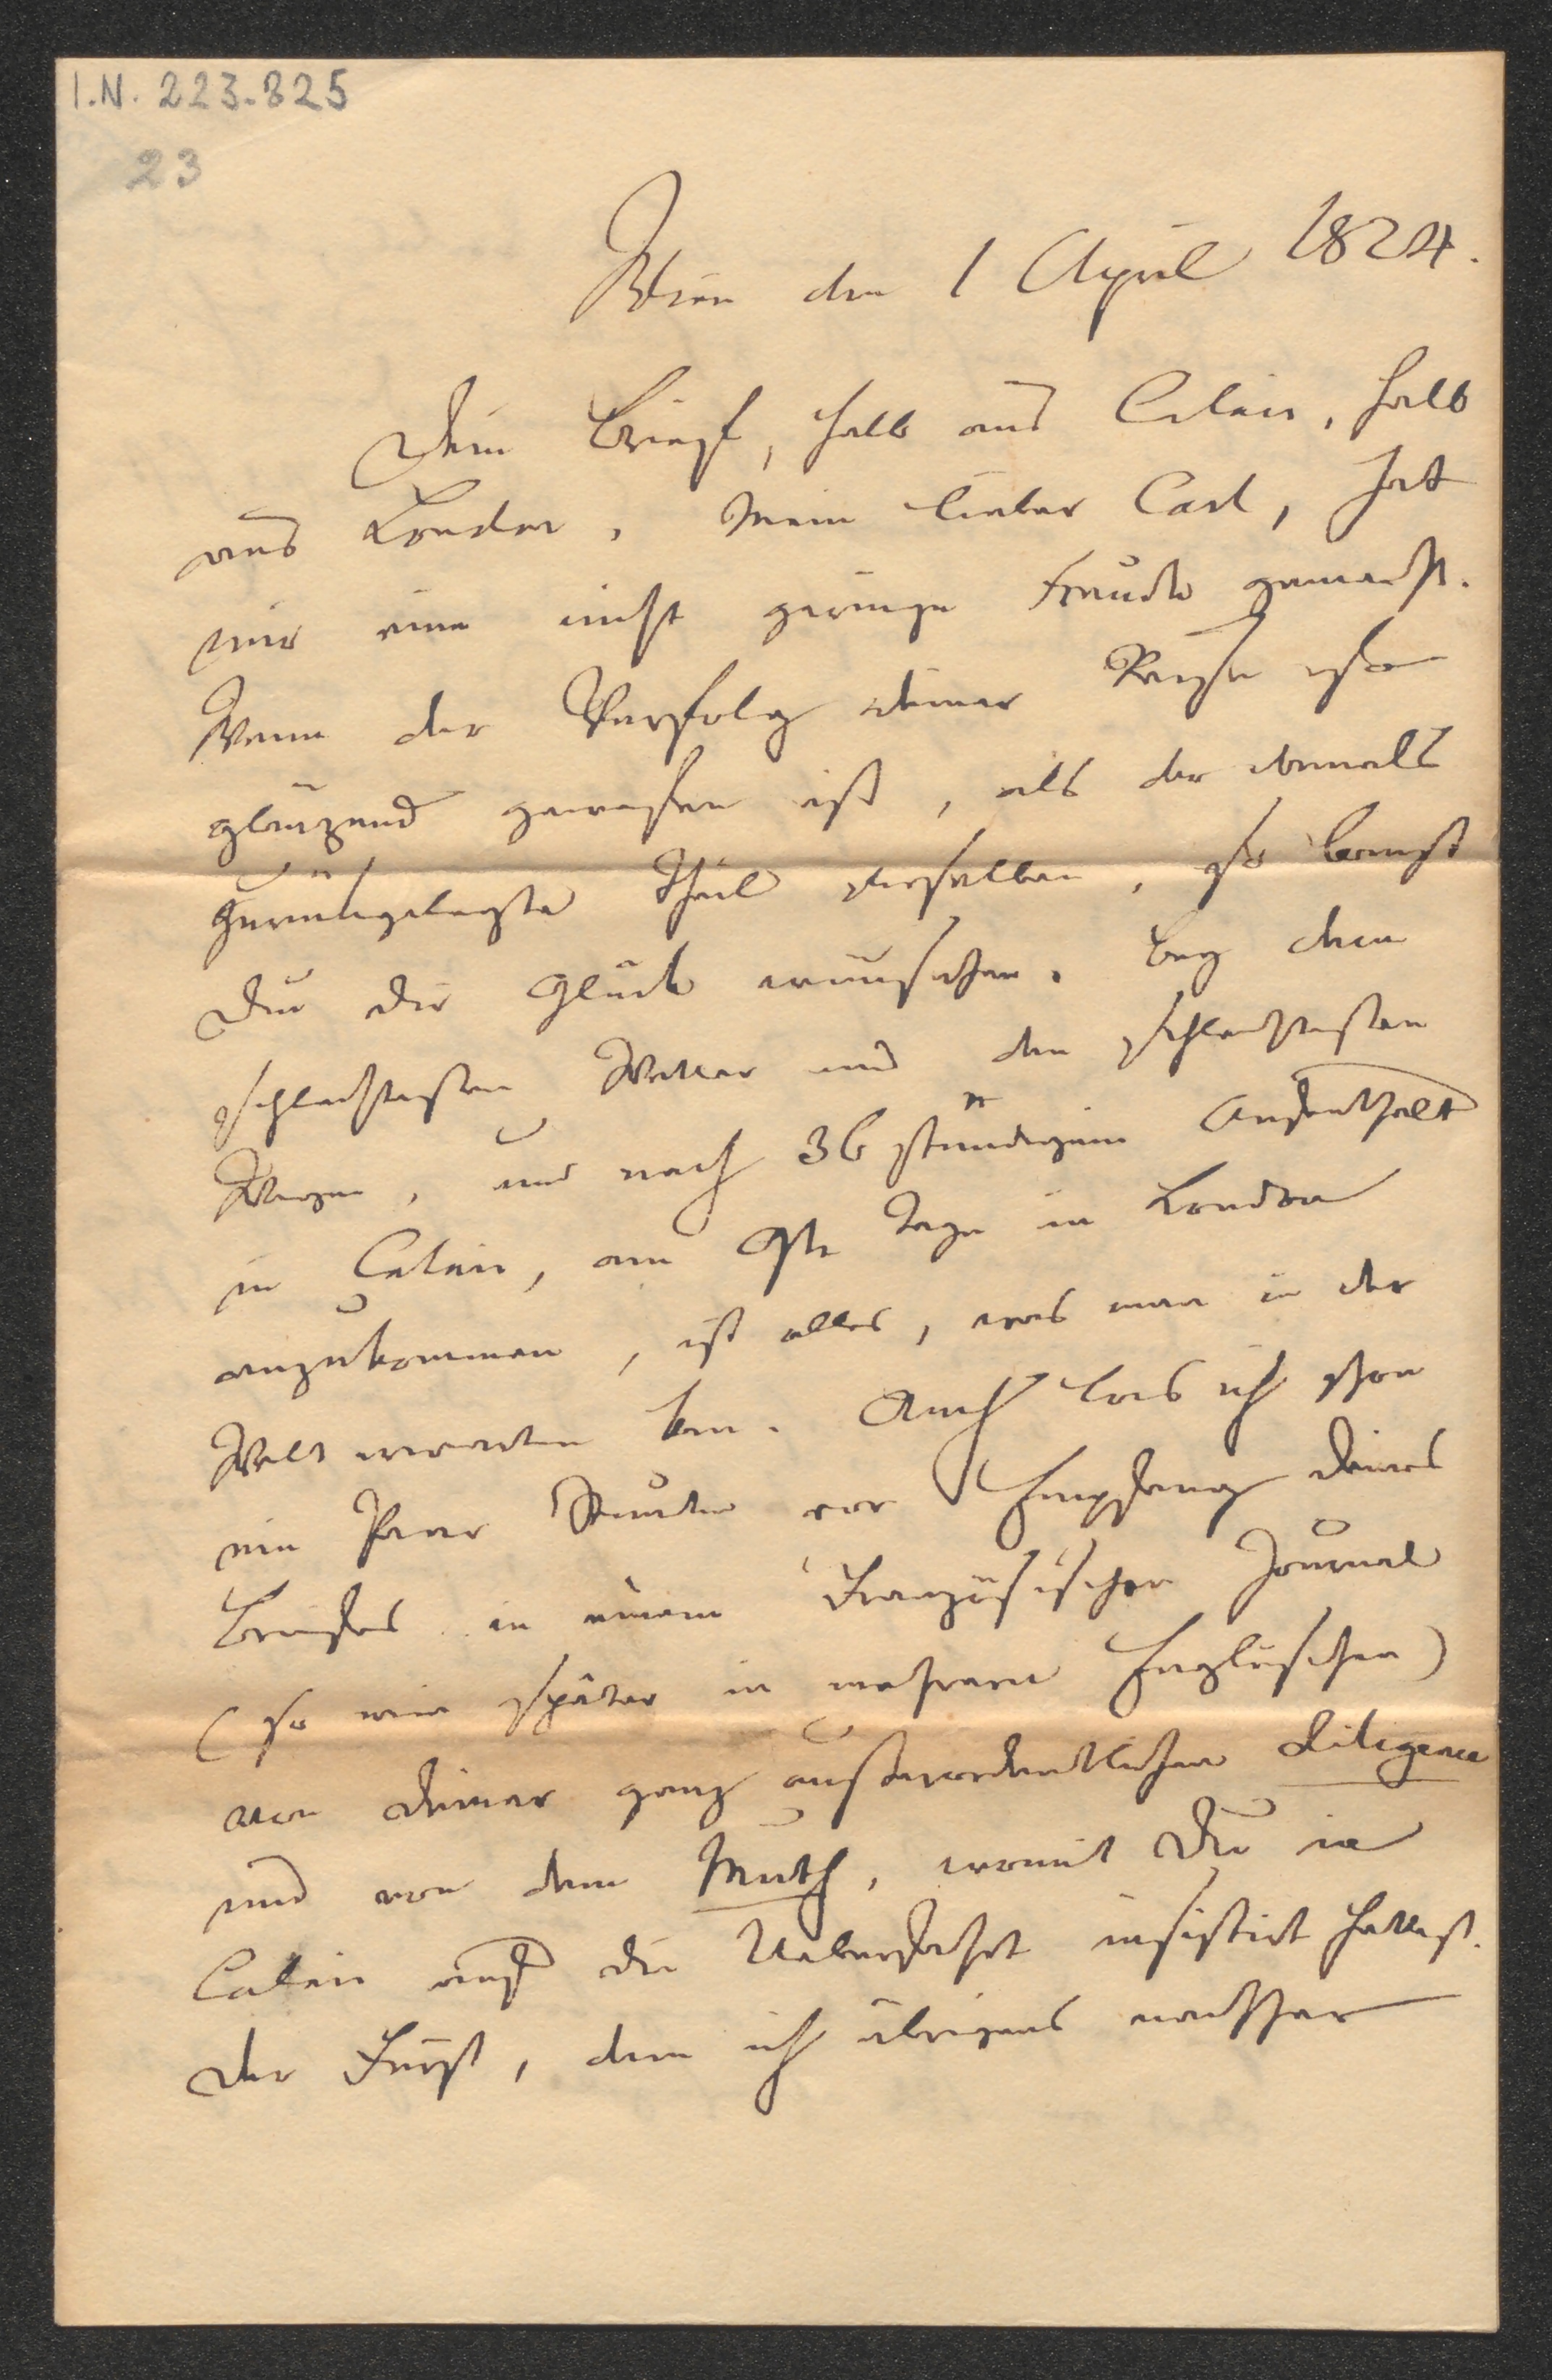 I.N. 223.825
23
Wien den 1 April 1824.
Dein Brief, halb aus Calais, halb
aus London, mein lieber Carl, hat
mir eine nicht geringe Freude gemacht.
Wenn der Verfolg deiner Reise so
glänzend gewesen ist, als der damals
zurükgelegte Theil derselben, so kannst
Du dir Glück wünschen. Bey dem
schlechtesten Wetter und den schlechtesten
Wegen, und nach 36 stündigem Aufenthalt
in Calais, am 9ten Tage in London
anzukommen, ist alles, was man in der
Welt erwarten kan. Auch las ich schon
ein Paar Stunden vor Empfang deines
Briefes in einem Französischen Journal
(so wie später in mehrern Englischen)
von deiner ganz außerordentlichen Diligence
und von dem Muth, womit Du in
Calais auf die Ueberfahrt insistirt hattest.
Der Fürst, dem ich übrigens nachher